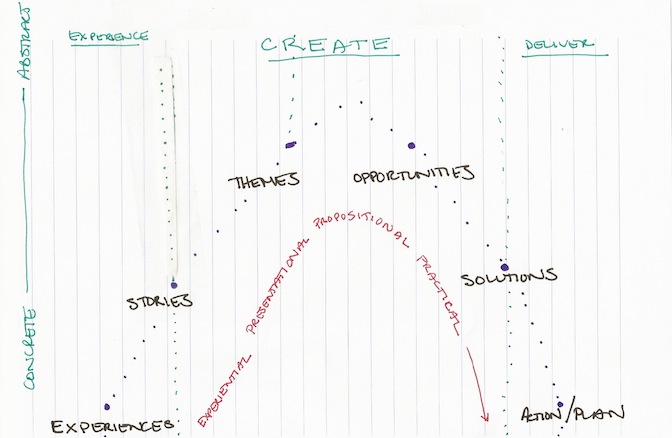 EXPERIENCE
CREATE
DELIVER
ABSTRACT
CONCRETE
THEMES
OPPORTUNITIES
STORIES
SOLUTIONS
EXPERIENCES
ACTION/PLAN
EXPERIENTIAL PRESENTATIONAL PROPOSITIONAL PRACTICAL